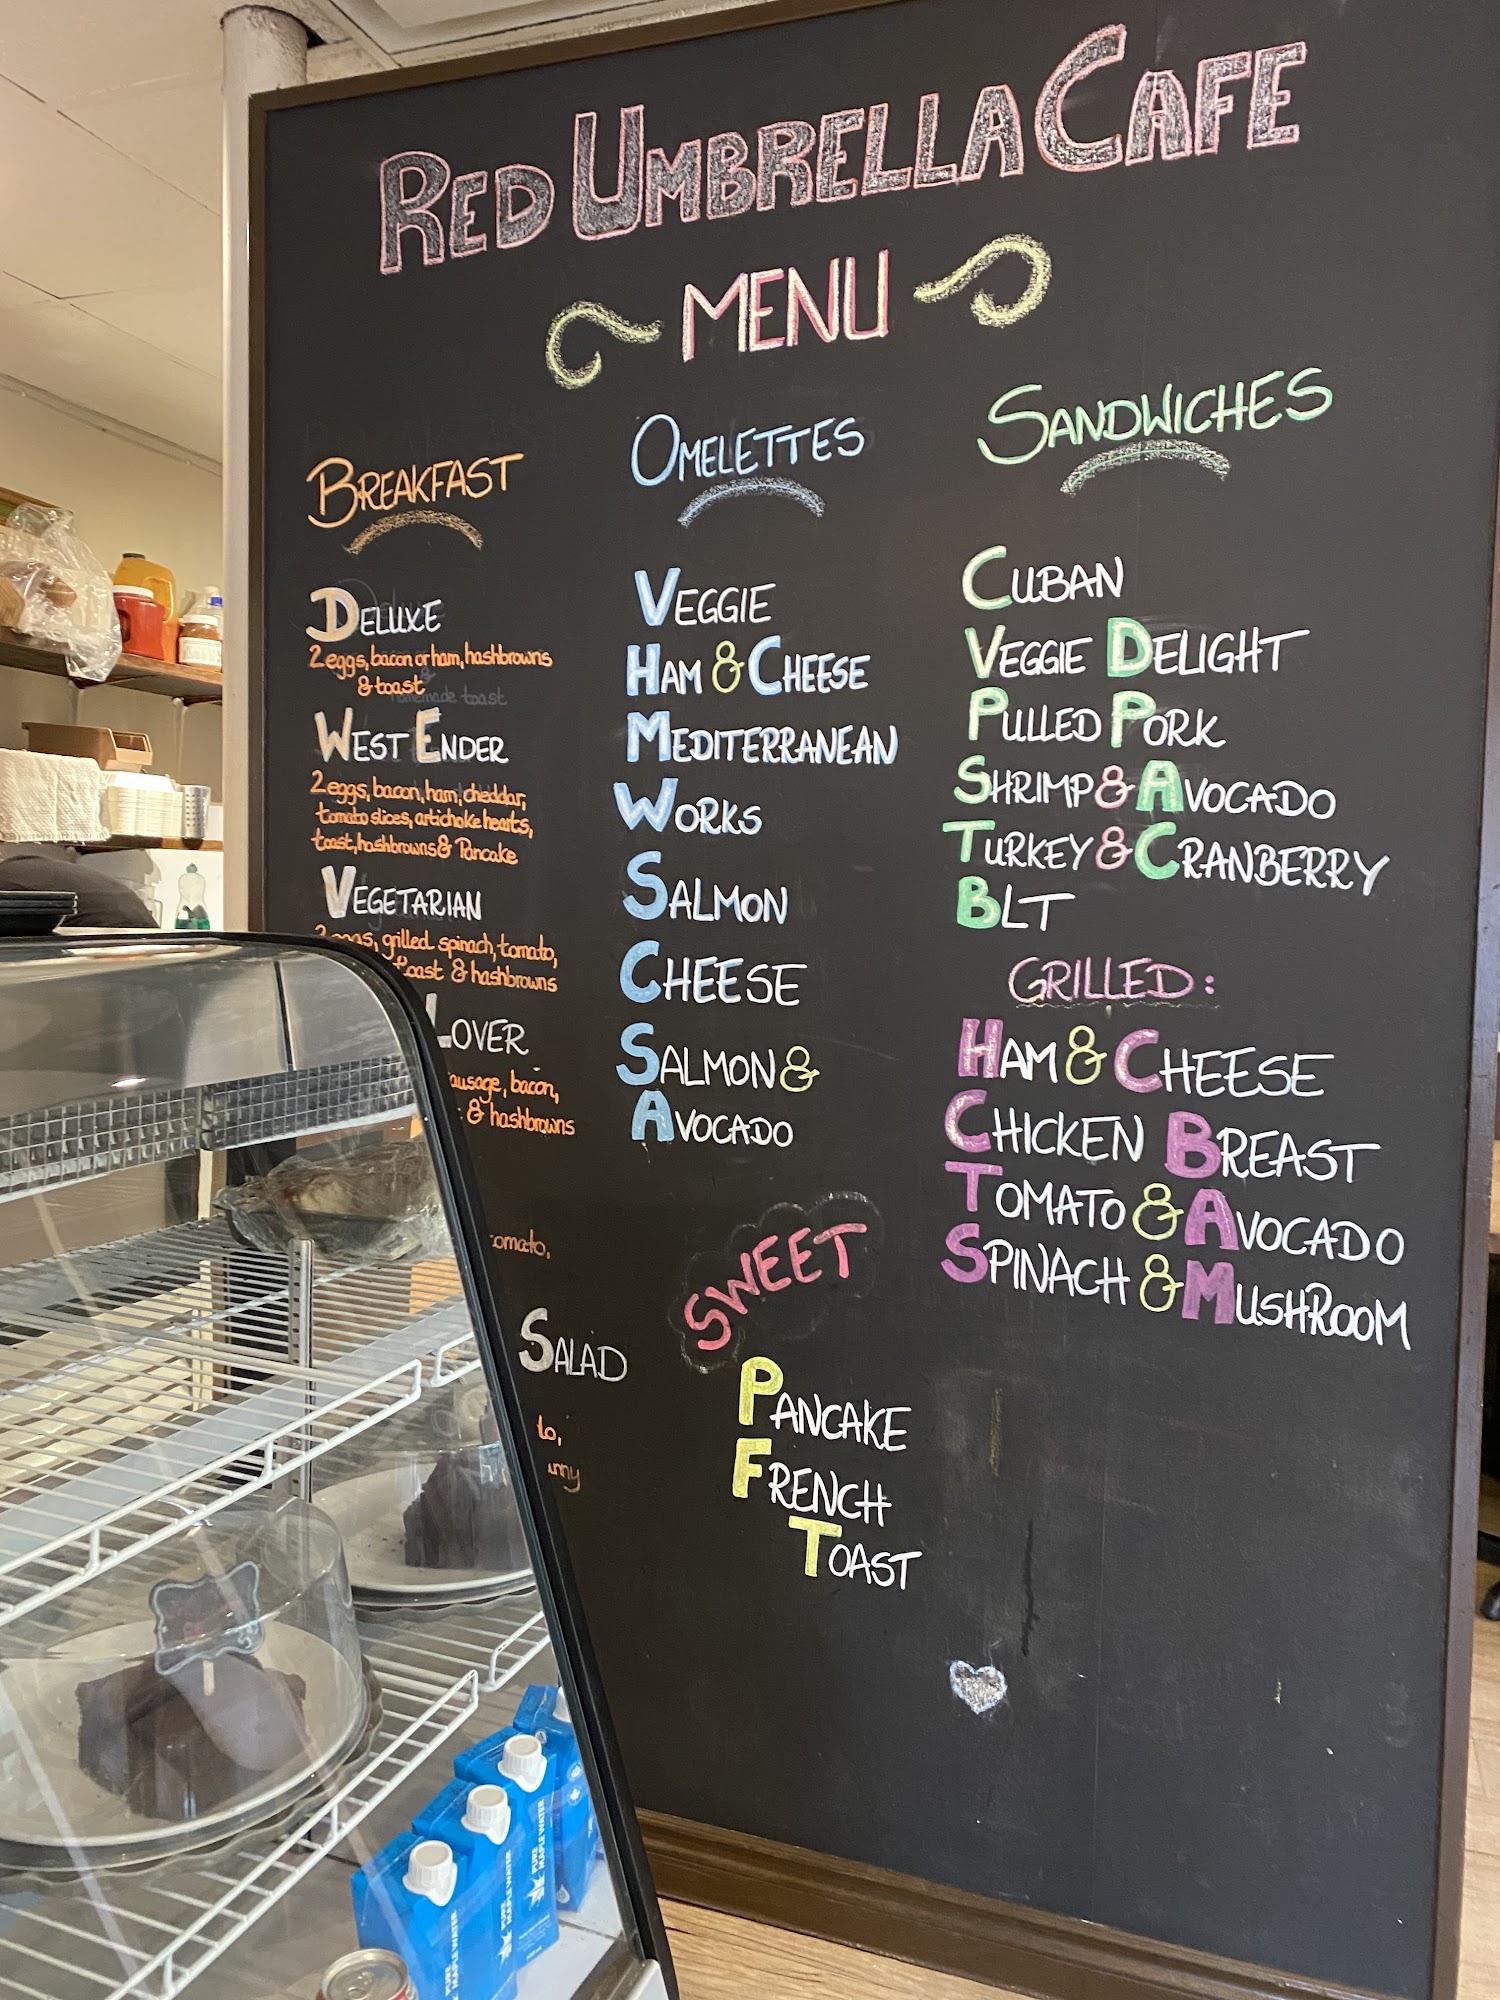 RED UMBRELLA CAFE
MENU
BREAKFAST
DELUXE
2 eggs, bacon or ham, hashbrowns
& toast
WEST ENDER
2 eggs, bacon, ham, cheddar,
tomato slices, artichoke hearts,
toast, hashbrowns & Pancake
VEGETARIAN
2 eggs, grilled spinach, tomato,
toast & hashbrowns
LOVER
ausage, bacon,
& hashbrowns
tomato,
SALAD
to,
OMELETTES
VEGGIE
HAM & CHEESE
MEDITERRANEAN
WORKS
SALMON
CHEESE
SALMON &
AVOCADO
SWEET
PANCAKE
FRENCH
TOAST
SANDWICHES
CUBAN
VEGGIE DELIGHT
PULLED PORK
SHRIMP & AVOCADO
TURKEY & CRANBERRY
BLT
GRILLED:
HAM & CHEESE
CHICKEN BREAST
TOMATO & AVOCADO
SPINACH & MUSHROOM
PURE
MAPLE WATER
PURE
MAPLE WATER
PURE
MAPLE WATER